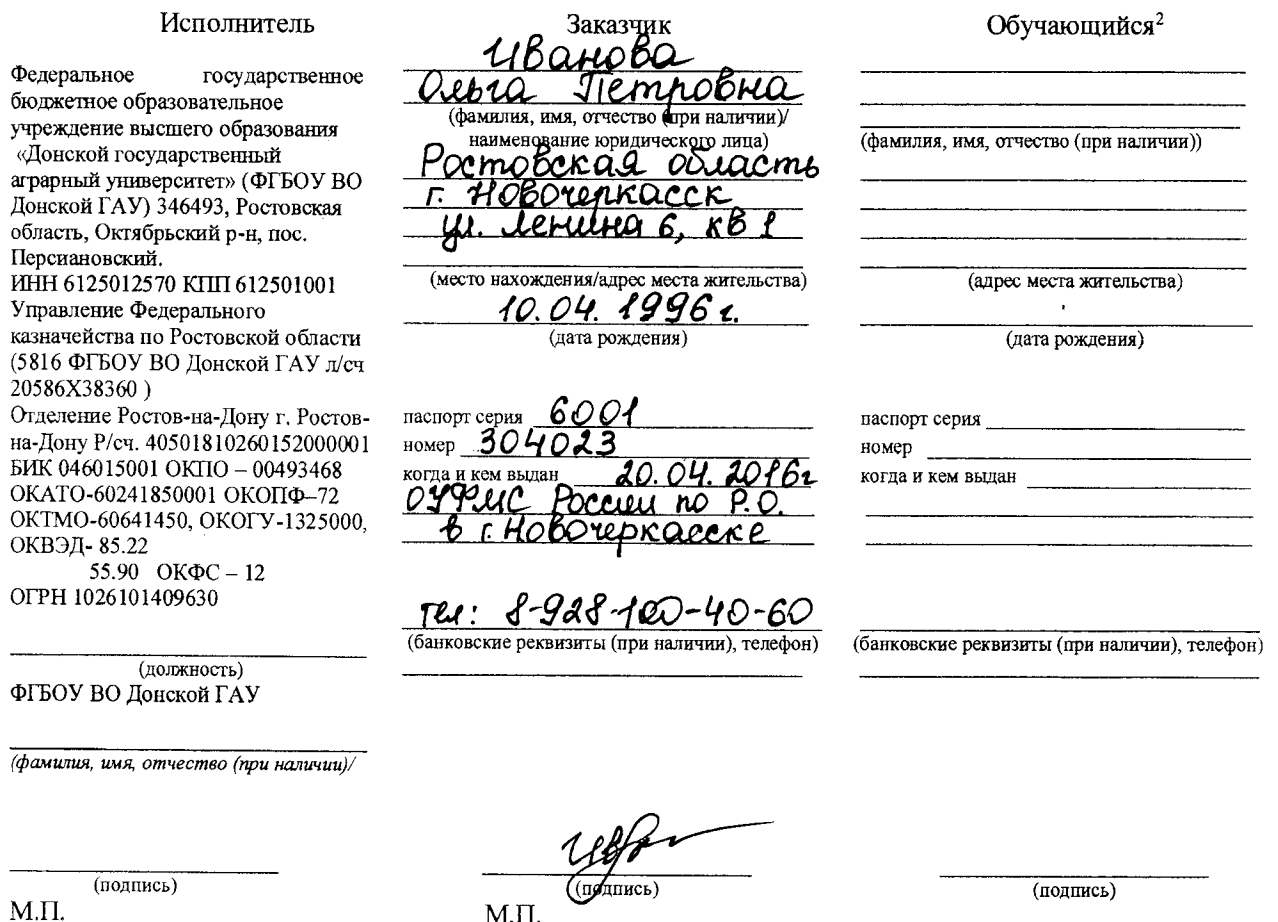 Исполнитель
Федеральное государственное
бюджетное образовательное
учреждение высшего образования
«Донской государственный
аграрный университет» (ФГБОУ ВО
Донской ГАУ) 346493, Ростовская
область, Октябрьский р-н, пос.
Персиановский.
ИНН 6125012570 КПП 612501001
Управление Федерального
казначейства по Ростовской области
(5816 ФГБОУ ВО Донской ГАУ л/сч
20586Х38360 )
Отделение Ростов-на-Дону г. Ростов-
на-Дону Р/сч. 40501810260152000001
БИК 046015001 ОКПО – 00493468
ОКАТО-60241850001 ОКОПФ–72
ОКТМО-60641450, ОКОГУ-1325000,
ОКВЭД- 85.22
55.90 ОКФС – 12
ОГРН 1026101409630
(должность)
ФГБОУ ВО Донской ГАУ
(фамилия, имя, отчество (при наличии)/
(подпись)
М.П.
Заказчик
Иванова
Ольга Петровна
(фамилия, имя, отчество (при наличии)/
наименование юридического лица)
Ростовская область
г. Новочеркасск
ул. Ленина 6, кв 1
(место нахождения/адрес места жительства)
10.04. 1996 г.
(дата рождения)
паспорт серия 6001
номер 304023
когда и кем выдан 20.04.2016г
ОУФМС России по Р.О.
в г. Новочеркасске
тел: 8-928-100-40-60
(банковские реквизиты (при наличии), телефон)
(подпись)
М.П.
Обучающийся²
(фамилия, имя, отчество (при наличии))
(адрес места жительства)
(дата рождения)
паспорт серия
номер
когда и кем выдан
(банковские реквизиты (при наличии), телефон)
(подпись)